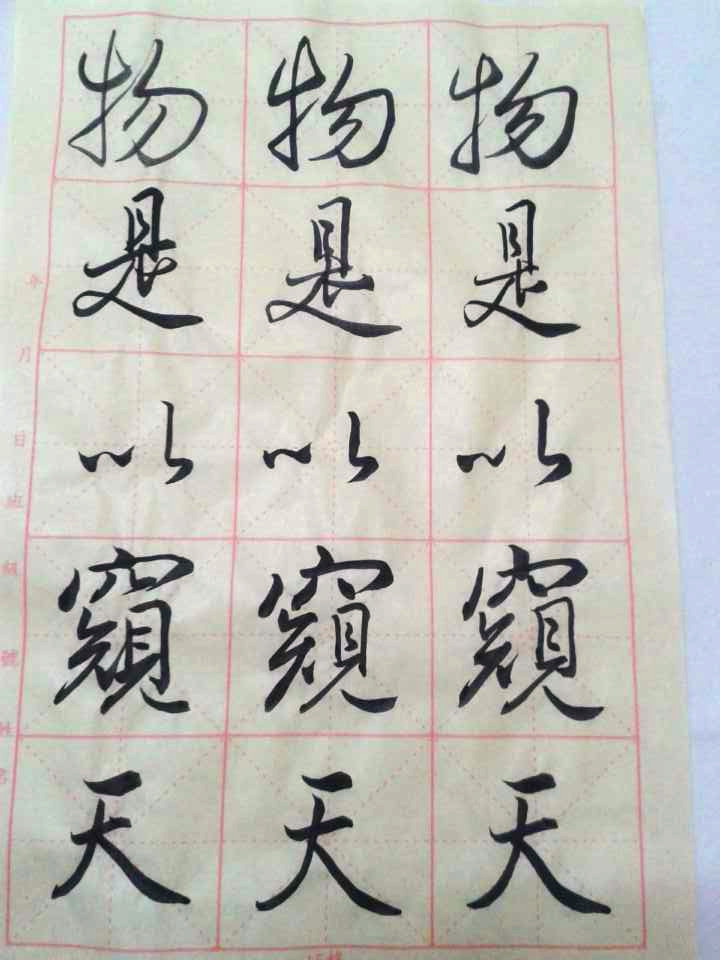 物物物
是是是
以以以
窺窺窺
天天天
年月日班級號姓名
15格